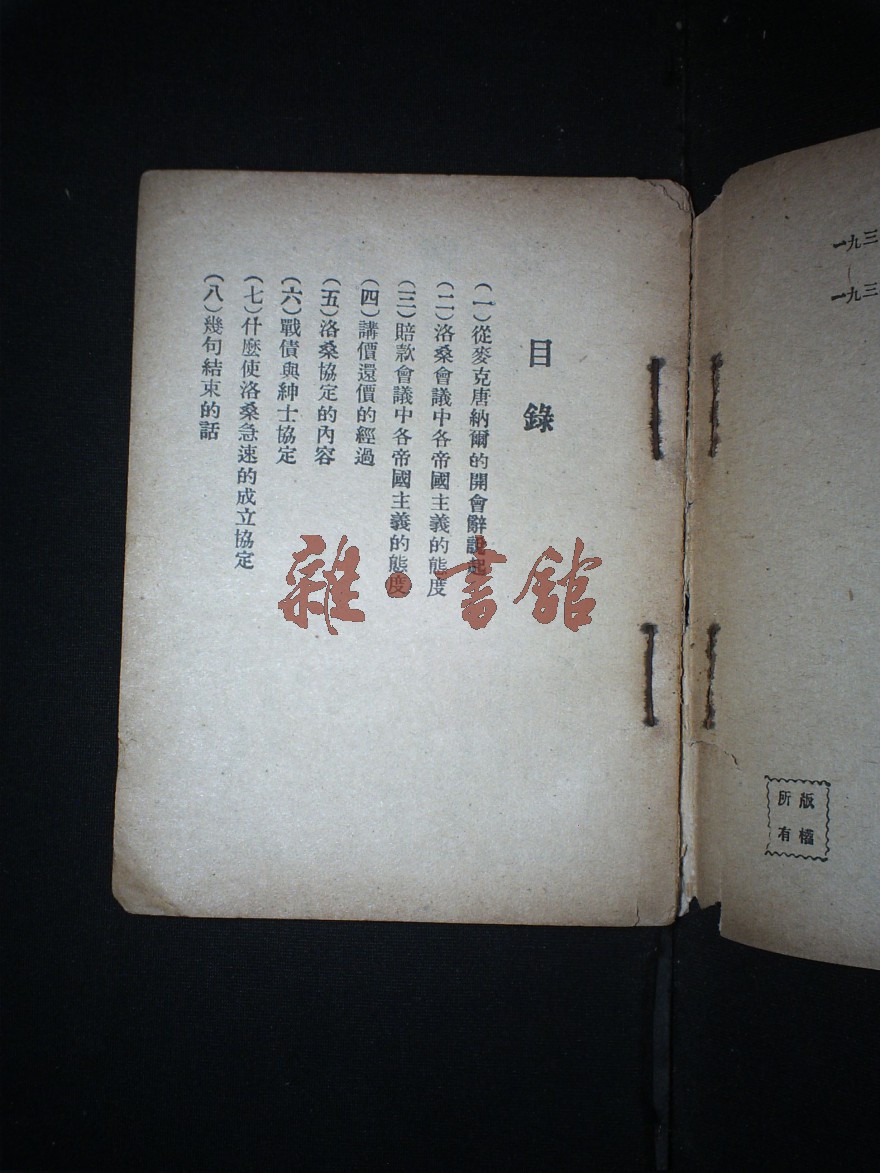 一九三
一九三
版權
所有
目錄
(一)從麥克唐納爾的開會辭說起
(二)洛桑會議中各帝國主義的態度
(三)賠款會議中各帝國主義的態度
(四)講價還價的經過
(五)洛桑協定的內容
(六)戰債與紳士協定
(七)什麼使洛桑急速的成立協定
(八)幾句結束的話
雜·書館